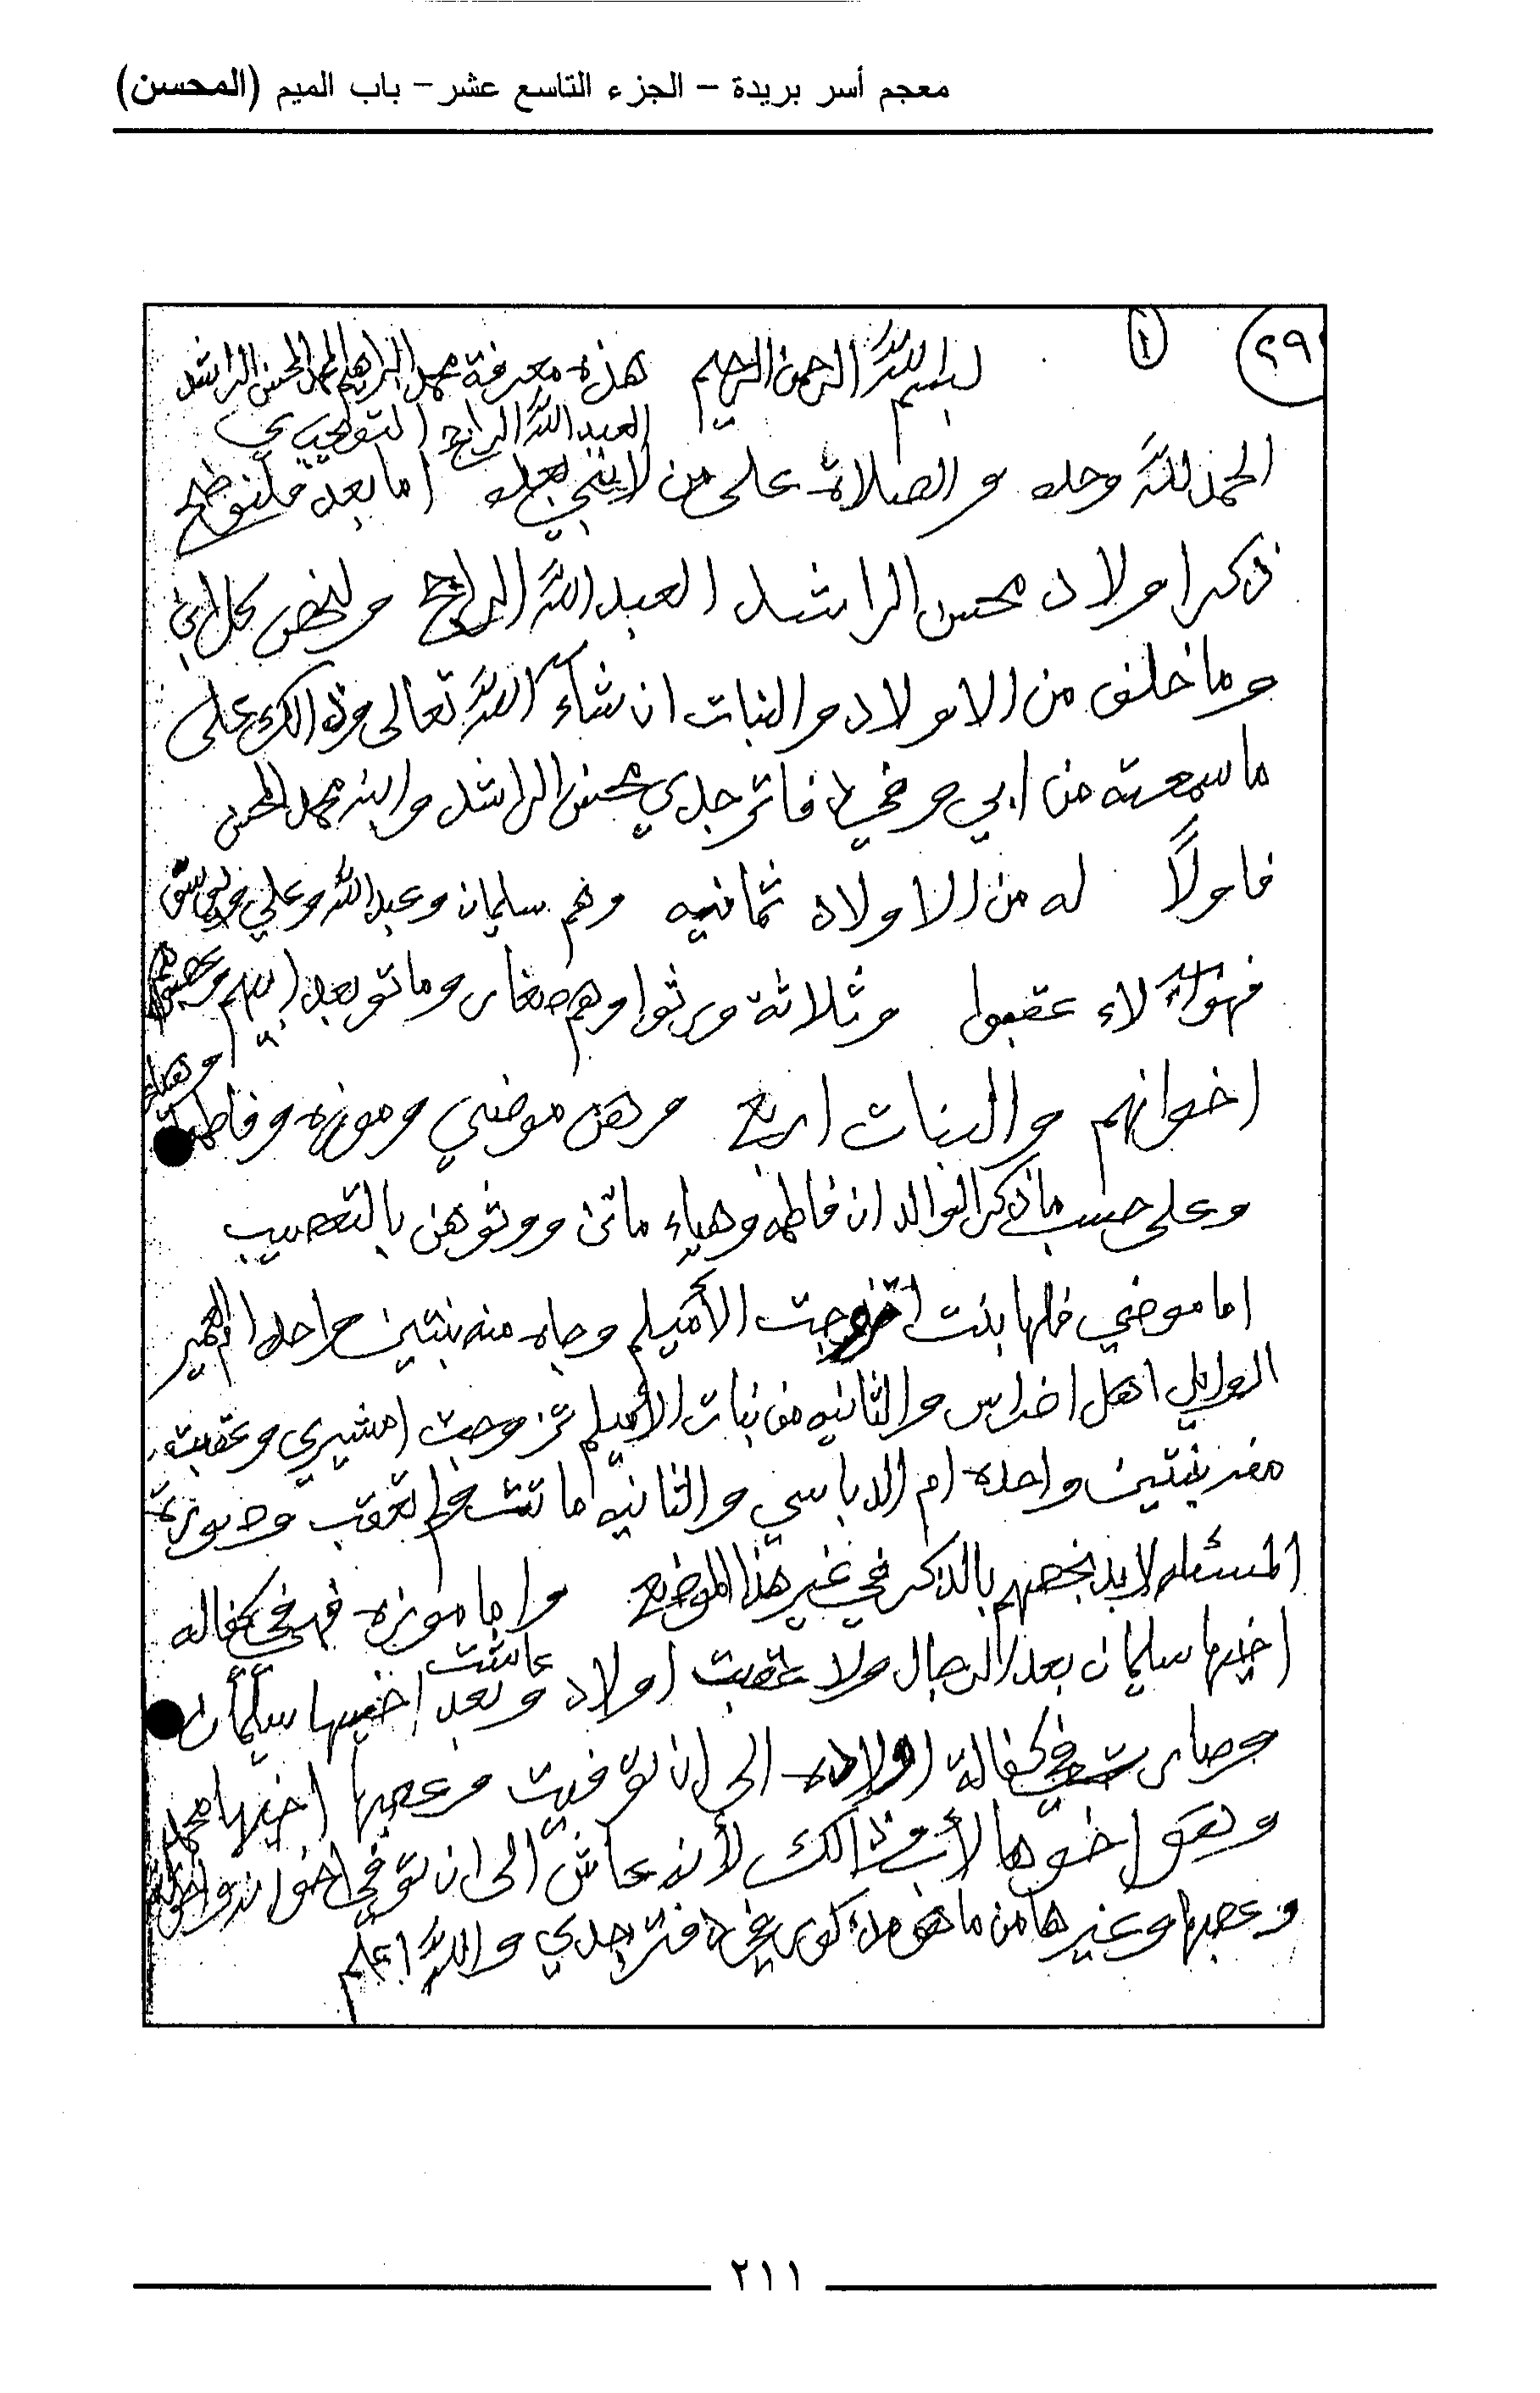 معجم أسر بريدة – الجزء التاسع عشر – باب الميم (المحسن)
٢٩
١
بسم الله الرحمن الرحيم هذه معرفة محمد البراهيم المحمد المحسن الراشد
العبدالله الرابح التويجري
الحمد لله وحده والصلاة على من لا نبي بعده اما بعد فلنوضح
ذكر اولاد محسن الراشد العبدالله الرابح ولنخص كل ابن
وما خلف من الاولاد والبنات ان شاء الله تعالى وذالك على
ما سمعته من ابي وفي دفاتر جدي محسن الراشد وابنه محمد المحسن
فاولاً له من الاولاد ثمانيه وهم سليمان وعبدالله وعلي
فهؤلاء عقبوا وثلاثة ورثوا وهم صغار وماتو بعد ابيهم
اخوانهم والبنات اربع وهن موضي وموزه وفاطمه وهياء
وعلى حسب ما ذكر الوالد ان فاطمه وهياء ماتن وورثوهن بالتعصيب
اما موضي فلها بنت اتزوجت الأميلم وجاه منه بنتين واحده
اهل اضراس والثانيه من بنات الأميلم تزوجت امشيري وعقبت
منه بنتين واحده ام الدباسي والثانيه ماتت ولم تعقب
المسئله لابد نخصهم بالذكر في غير هذا الموضع واما موزه فهي في كفاله
اخيها سليمان بعد الرجال ولا عقبت اولاد وبعد اخيها سليمان
عاشت
وصارت في كفالة اولاده الى ان توفيت وعصبها اخيها محمد
وهو اخوها لأب وذالك لأنه عاش الى ان توفي اخوانه
وعصبها وغيرها من ما هو مذكور في دفتر جدي والله اعلم
٢١١